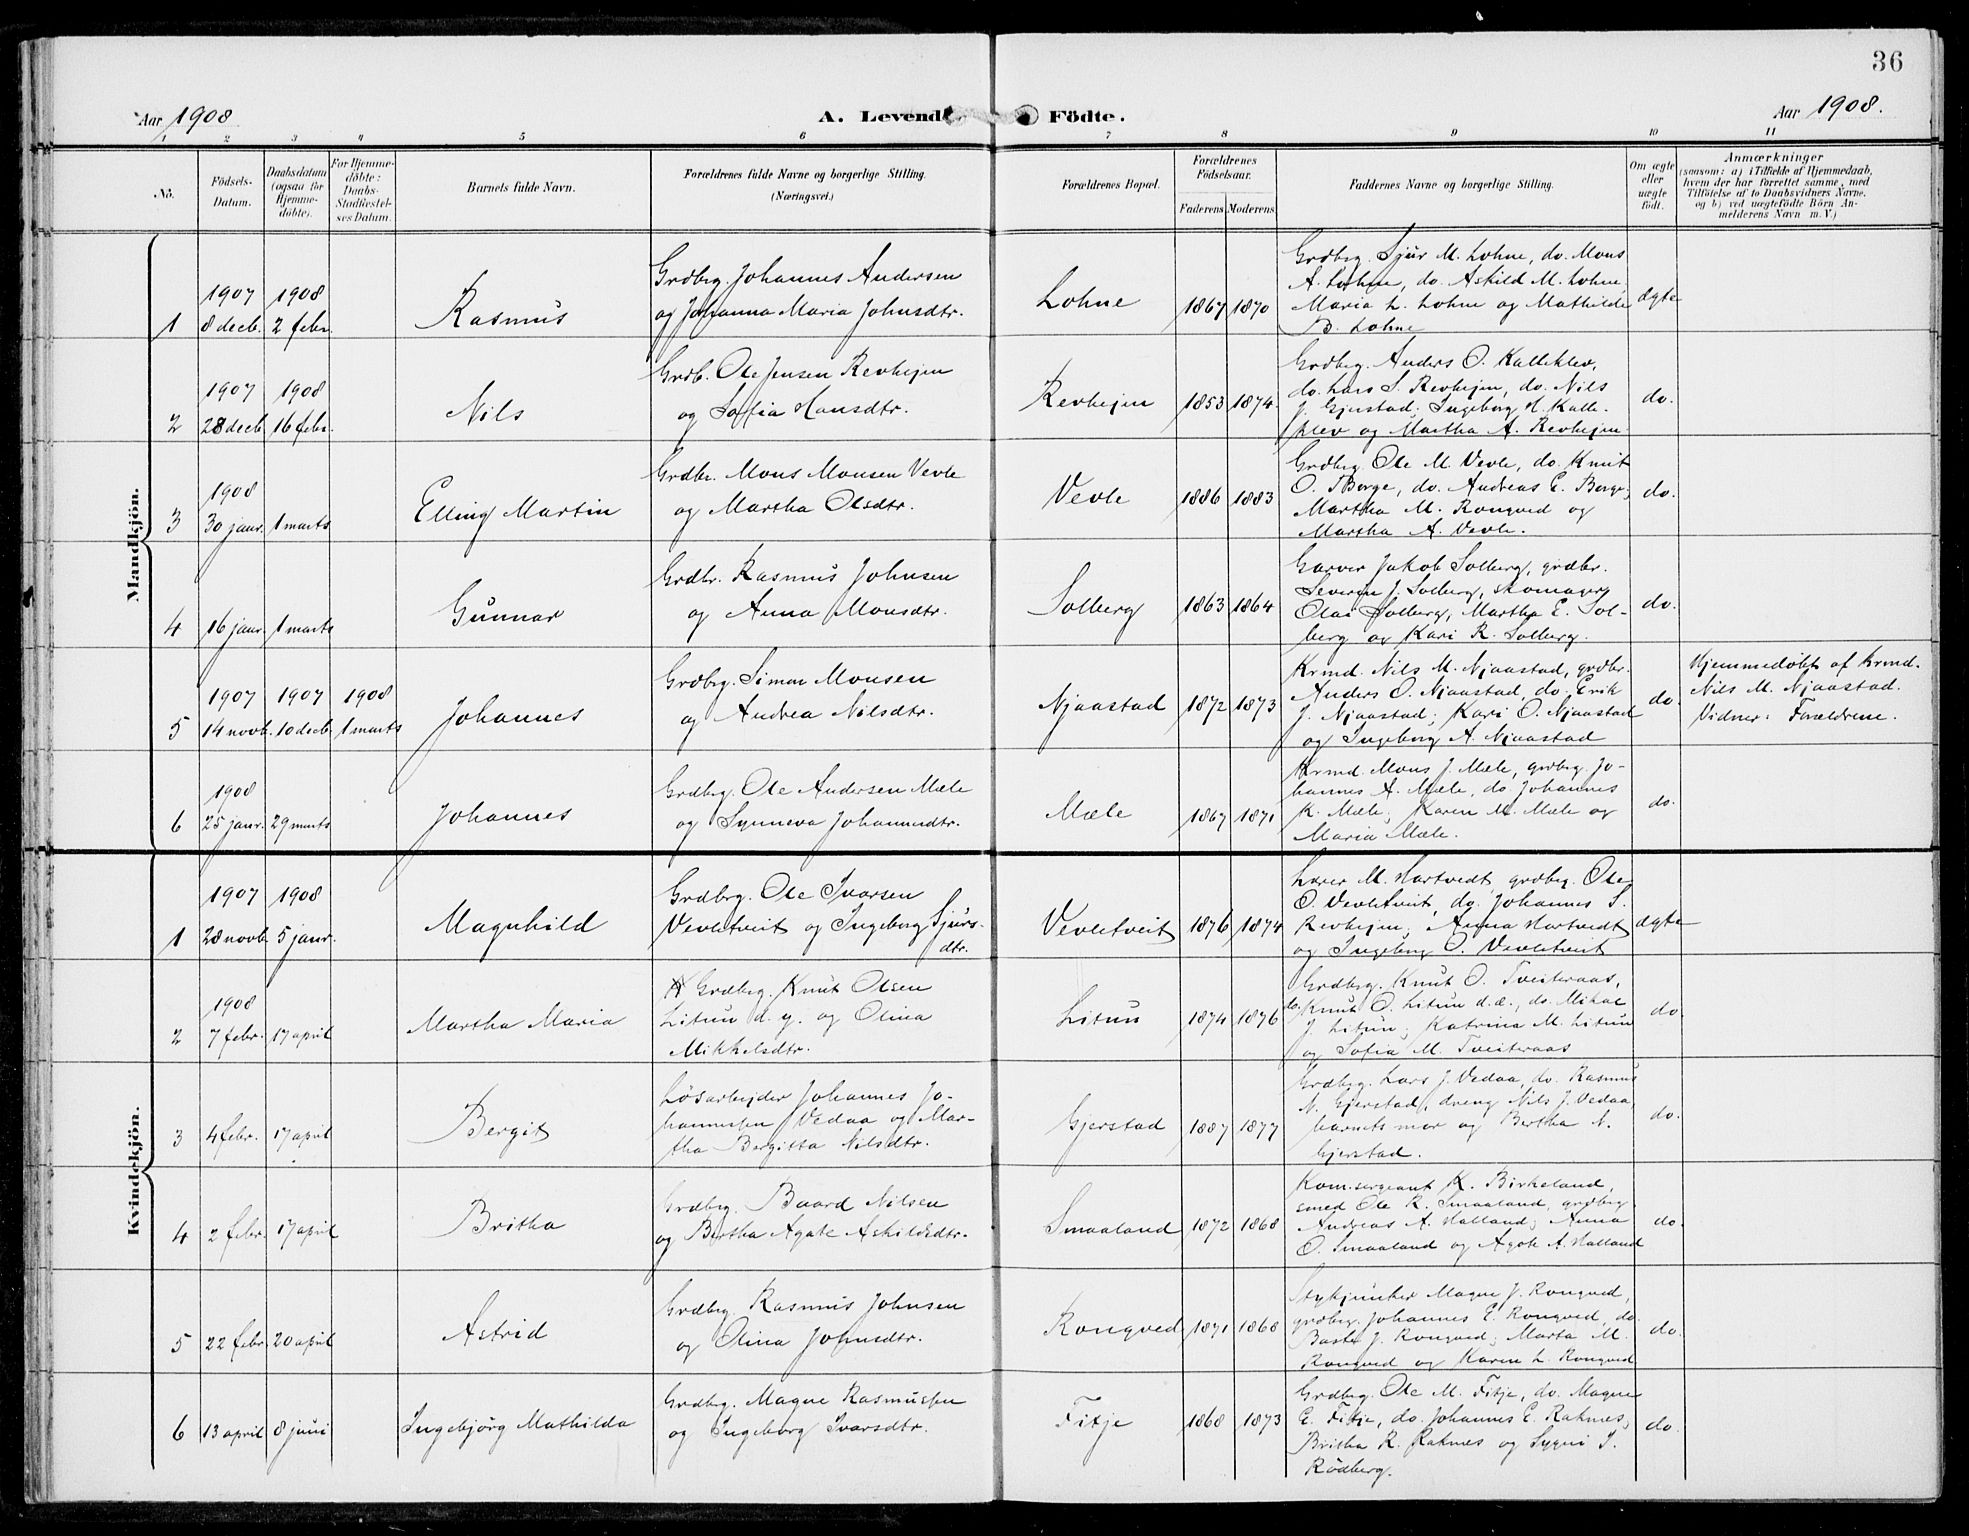 36
Aar 1908.
A. Levende Födte.
Aar 1908.
1 2 3 4 5 6 7 8 9 10 11
Nō.
Födsels-
Datum.
Daabsdatum
(ogsaa for
Hjemme-
döbte).
For Hjemme-
döbte:
Daabs-
Stadfæstel-
ses Datum.
Barnets fulde Navn.
Forældrenes fulde Navne og borgerlige Stilling.
(Næringsvei.)
Forældrenes Bopæl.
Forældrenes
Födselsaar.
Faderens Moderens
Faddernes Navne og borgerlige Stilling.
Om ægte
eller
uægte
født.
Anmærkninger
(saasom: a) i Tilfælde af Hjemmedaab,
hvem der har forrettet samme, med
Tilföielse af to Daabsvidners Navne.
og b) ved uægtefödte Börn An-
melderens Navn m. V.)
Mandkjön.
1
1907
8 decb.
1908
2 febr.
Rasmus
Grdbrg. Johannes Andersen
og Johanna Maria Johnsdtr.
Lohne
1867 1870
Grdbrg. Sjur M. Lohne, do. Mons
A. Lohne, do. Askild M. Lohne,
Maria L. Lohne og Mathilde
B. Lohne
ægte
2
1907
28 decb.
1908
16 febr.
Nils
Grdb. Ole Jensen Revhejen
og Sofia Hansdtr.
Revhejen
1853 1874.
Grdbrg. Anders O. Kalleklev,
do. Lars S. Revhejen, do. Nils
J. Gjerstad; Ingeborg H. Kalle-
klev og Martha A. Revhejen.
do.
3
1908
30 jaur.
1 marts
Elling Martin
Grdbr. Mons Monsen Vevle
og Martha Olsdtr.
Vevle
1886 1883
Grdbrg. Ole M. Vevle, do. Knut
O. Borge, do. Andreas E. Borge;
Martha M. Rongved og
Martha A. Vevle.
do.
4
16 jaur.
1 marts
Gunnar
Grdbr. Rasmus Johnsen
og Anna Monsdtr.
Solberg
1863 1864
Garver Jakob Solberg, grdbr.
Severin J. Solberg, skomager
Olai Solberg, Martha E. Sol-
berg og Kari R. Solberg.
do.
5
1907
14 novb.
1907
10 decb.
1908
1 marts
Johannes
Grdbrg. Simon Monsen
og Andrea Nilsdtr.
Njaastad
1872 1873
Krmd. Nils M. Njaastad, grdbr.
Anders O. Njaastad, do. Erik
J. Njaastad; Kari O. Njaastad
og Ingeborg A. Njaastad
do.
Hjemmedøbt af krmd.
Nils M. Njaastad.
Vidner: Forældrene.
6
1908
25 janr.
29 marts
Johannes
Grdbrg. Ole Andersen Mæle
og Synneva Johannesdtr.
Mæle
1867 1871
Krmd. Mons J. Mæle, grdbrg. Jo-
hannes A. Mæle, do. Johannes
K. Mæle; Karen M. Mæle og
Maria Mæle.
do.
Kvindekjön.
1
1907
28 novb.
1908
5 janr.
Magnhild
Grdbrg. Ole Ivarsen
Vevletveit og Ingeborg Sjurs-
dtr.
Vevletveit
1876 1874
Lærer M. Hartvedt, grdbrg. Ole
O. Vevletveit, do. Johannes S.
Revhejen; Anna Hartvedt
og Ingeborg O. Vevletveit
ægte
2
1908
7 febr.
17 april
Martha Maria
Grdbrg. Knut Olsen
Litun d. y. og Olina
Mikkelsdtr.
Litun
1874 1876
Grdbrg. Knut O. Tveiteraas,
do. Knut O. Litun d.æ., do. Mikal
J. Litun; Katrina M. Litun
og Sofia M. Tveiteraas
do.
3
4 febr.
17 april
Bergit
Løsarbejder Johannes Jo-
hannessen Vedaa og Mar-
tha Bergitta Nilsdtr.
Gjerstad
1887 1877
Grdbrg. Lars J. Vedaa, do. Rasmus
N. Gjerstad, dreng Nils J. Vedaa,
barnets mor og Bertha N.
Gjerstad.
do.
4
2 febr.
17 april
Britha
Grdbrg. Baard Nilsen
og Bertha Agate Askildsdtr.
Smaaland
1872 1868
Kom.sergeant K. Birkeland,
smed Ole R. Smaaland, grdbrg.
Andreas A. Halland; Anna
O. Smaaland og Agate A. Halland
do.
5
22 febr.
20 april
Astrid
Grdbrg. Rasmus Johnsen
og Olina Johnsdtr.
Rongved
1871 1868
Stykjunker Magne J. Rongved,
grdbrg. Johannes E. Rongved, do.
J. Rongved; Marta M.
Rongved og Karen L. Rongved
do.
6
13 april
8 juni
Ingebjörg Mathilda
Grdbrg. Magne Rasmussen
og Ingeborg Ivarsdtr.
Fitje
1868 1873
Grdbrg. Ole M. Fitje, do. Magne
E. Fitje, do. Johannes E. Raknes;
Britha R. Raknes og Sygni I.
Rödberg.
do.